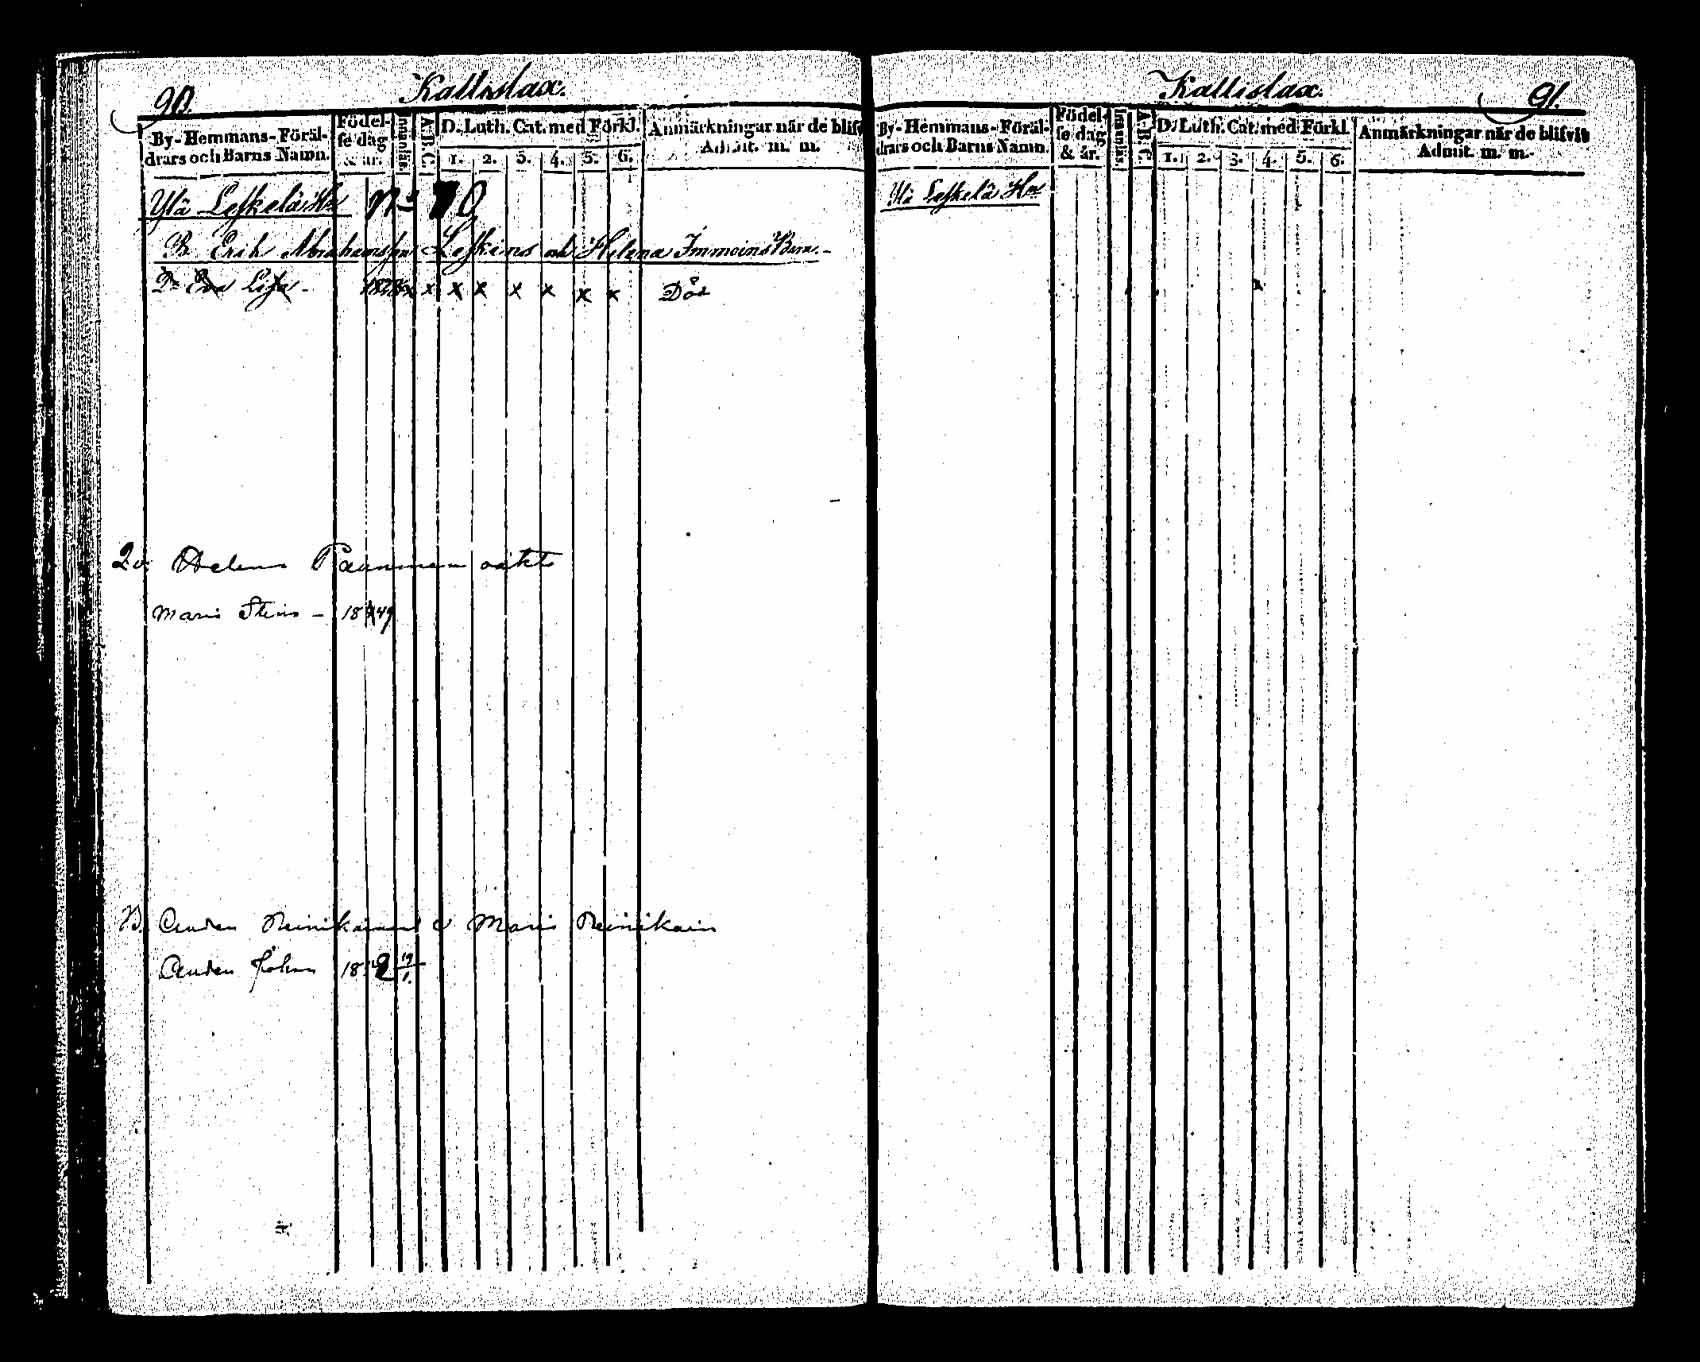 90.
Kallislax.
By-Hemmans-Föräl-
drars och Barns Namn.
Födel-
se dag
& år.
Innanläs.
A.B.C.
D. Luth. Cat. med Förkl.
1. 2. 3. 4. 5. 6.
Anmärkningar när de blifv
Admit. m. m.
Ylä Leskelä Hn No 70
B Erik Abrahamsson Leskins och Helena Immoins Barn.
Dr Eva Lisa - x x x x x x x x Död
Helena Paaninen
Maria Stina - 18 49
B. Anders Reinikainen o Maria Reinikain
Anders Johan 18
Kallislax.
91.
By-Hemmans-Föräl-
drars och Barns Namn.
Födel-
se dag
& år.
Innanläs.
A.B.C.
D. Luth. Cat. med Förkl.
1. 2. 3. 4. 5. 6.
Anmärkningar när de blifvit
Admit. m. m.
Ylä Leskelä Hn